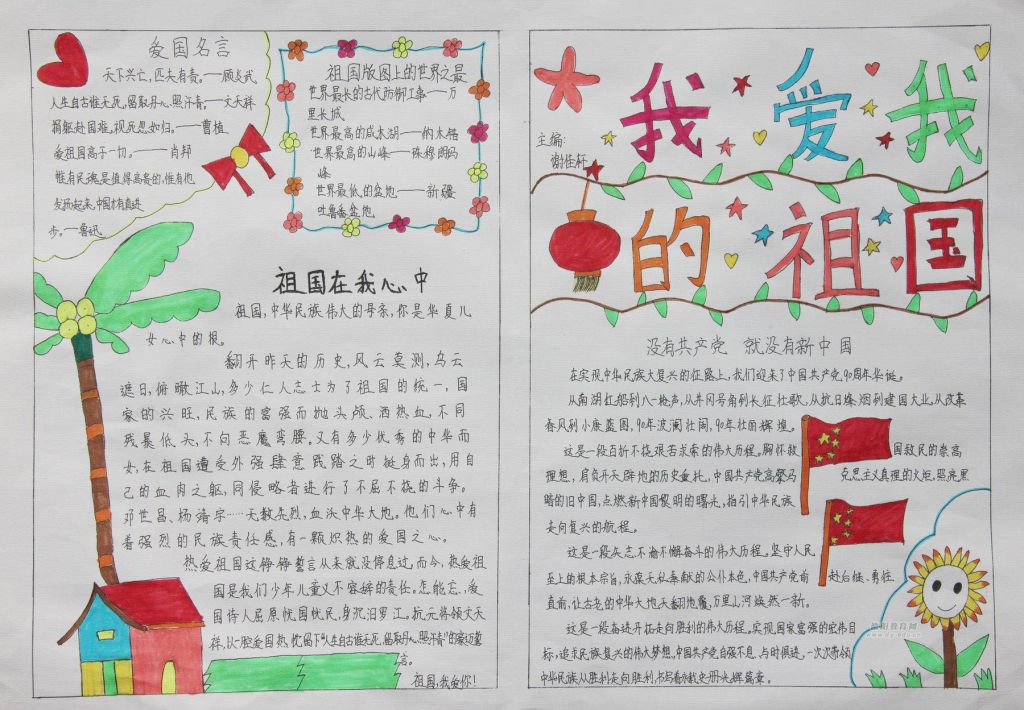 爱国名言
天下兴亡,匹夫有责。——顾炎武
人生自古谁无死,留取丹心照汗青。——文天祥
捐躯赴国难,视死忽如归。——曹植
爱祖国高于一切。——肖邦
惟有民魂是值得高贵的,惟有他
发扬起来,中国才有真进
步。——鲁迅
祖国版图上的世界之最
世界最长的古代防御工事——万
里长城
世界最高的咸水湖——纳木错
世界最高的山峰——珠穆朗玛
峰
世界最低的盆地——新疆
吐鲁番盆地
祖国在我心中
祖国,中华民族伟大的母亲,你是华夏儿
女心中的根。
翻开昨天的历史,风云莫测,乌云
遮日,俯瞰江山,多少仁人志士为了祖国的统一,国
家的兴旺,民族的富强而抛头颅、洒热血,不同
残暴低头,不向恶魔弯腰。又有多少优秀的中华而
女,在祖国遭受外强肆意践踏之时挺身而出,用自
己的血肉之躯,同侵略者进行了不屈不挠的斗争。
邓世昌、杨靖宇……无数先烈,血沃中华大地。他们心中有
着强烈的民族责任感,有一颗炽热的爱国之心。
热爱祖国这铮铮誓言从来就没停息过。而今,热爱祖
国是我们少年儿童义不容辞的责任。怎能忘,爱
国诗人屈原忧国忧民,身沉汨罗江,抗元将领文天
祥,以一腔爱国热忱留下“人生自古谁无死,留取丹心照汗青”的豪迈誓
言。
祖国,我爱你!
我爱我
主编:
谢佳轩
的祖国
没有共产党 就没有新中国
在实现中华民族大复兴的征路上,我们迎来了中国共产党90周年华诞。
从南湖红船到八一枪声,从井冈号角到长征壮歌,从抗日烽烟到建国大业,从改革
春风到小康蓝图,90年波澜壮阔,90年壮丽辉煌。
这是一段百折不挠、艰苦求索的伟大历程。胸怀救国救民的崇高
理想,肩负开天辟地的历史重托,中国共产党高擎马克思主义真理的火炬,照亮黑
暗的旧中国,点燃新中国黎明的曙光,指引中华民族
走向复兴的航程。
这是一段矢志不渝不懈奋斗的伟大历程。坚守人民
至上的根本宗旨,永葆无私奉献的公仆本色,中国共产党前赴后继、勇往
直前,让古老的中华大地天翻地覆,万里山河焕然一新。
这是一段奋进开拓走向胜利的伟大历程。实现国家富强的宏伟目
标,追求民族复兴的伟大梦想,中国共产党自强不息、与时俱进,一次次带领
中华民族从胜利走向胜利,书写着历史册光辉篇章。